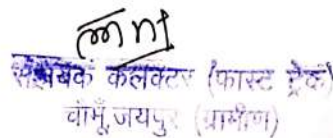 सहायक कलक्टर (फास्ट ट्रेक)
चौमूँ, जयपुर (ग्रामीण)